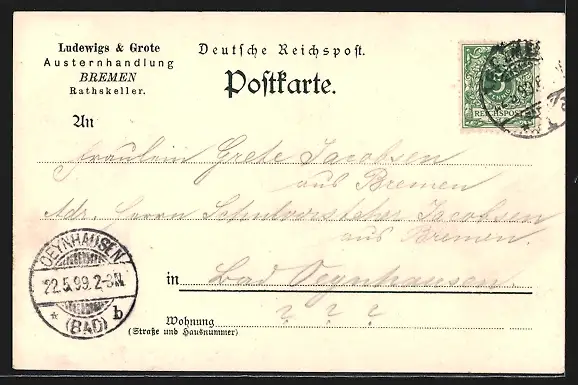 Ludewigs & Grote
Austernhandlung
BREMEN
Rathskeller.
Deutsche Reichspost.
Postkarte.
REICHSPOST
An
Fräulein Grete Jacobsen
aus Bremen
Adr. Herrn Schulvorsteher Jacobsen
aus Bremen.
in Bad Oeynhausen.
Wohnung ? ? ?
(Straße und Hausnummer)
OEYNHAUSEN
22.5.99.2-3N.
* (BAD) b